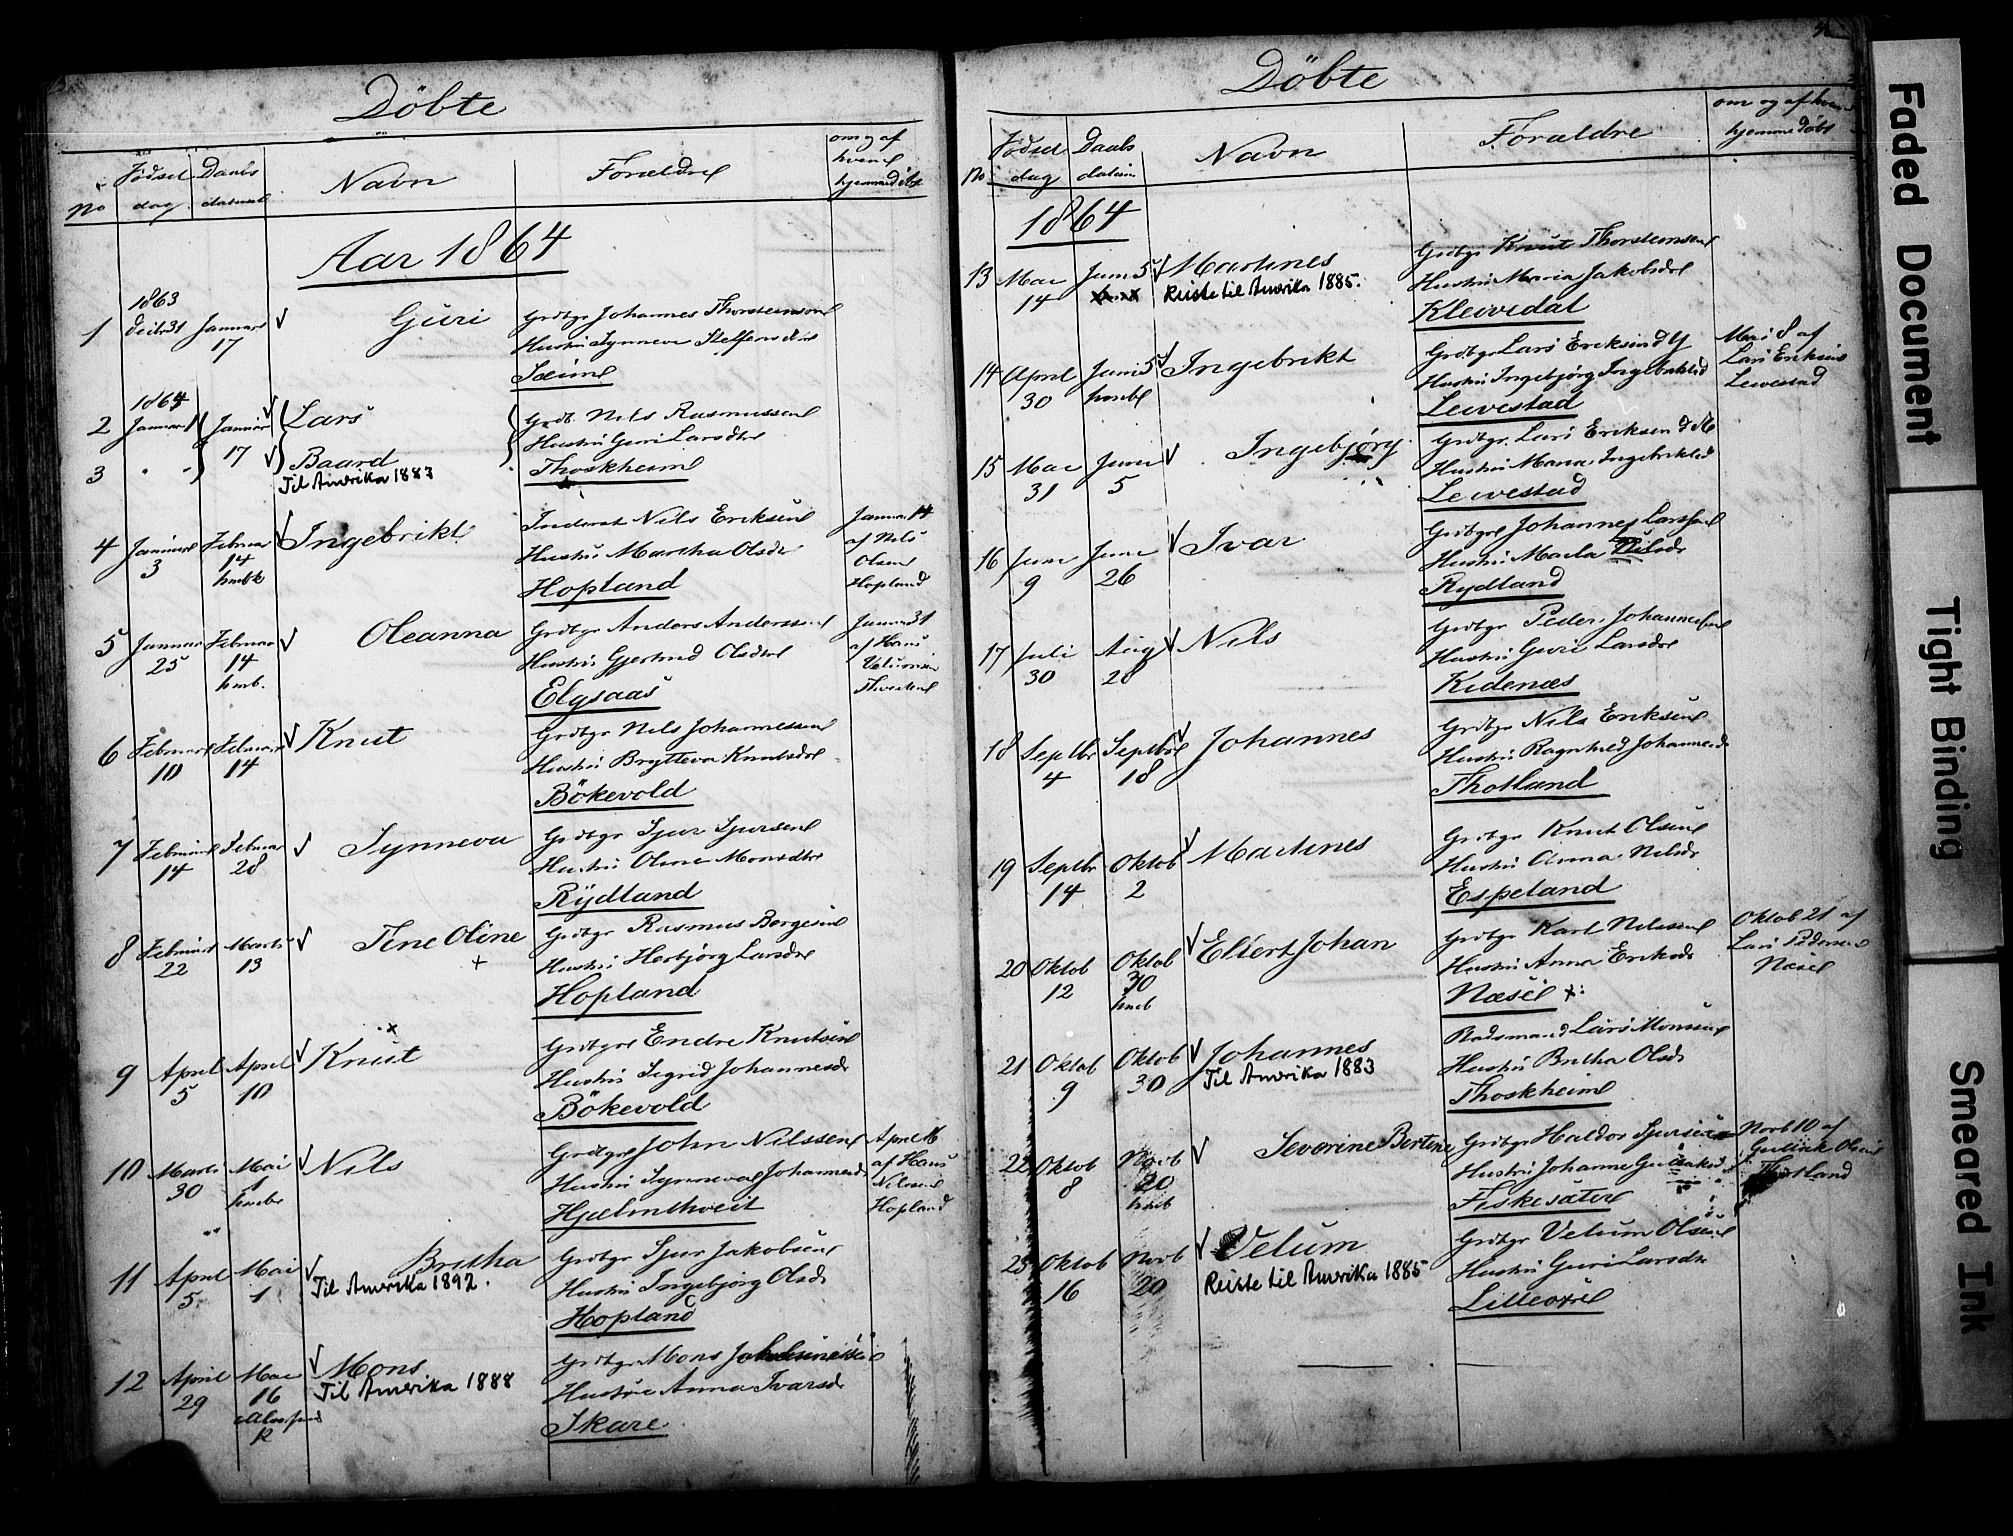 Döbte
No
Födsel dag
Daabs datum
Navn
Forældre
om og af hvem hjemmedöbt
Aar 1864
1
1863 Decbr 31
Januar 17
Guri
Grdbgr Johannes Thorsteinsen
Hustru Synneva Steffensdtr
Sæim
2
1864 Januar 1
Januar 17
Lars
Grdb. Nils Rasmussen
Hustru Guri Larsdtr
3
" "
Baard
Til Amerika 1883
Throskheim
4
Januar 3
Februar 14 hmbt
Ingebrikt
Inderst Nils Eriksen
Hustru Martha Olsdr
Hopland
Januar 14 af Nils Olsen Hopland
5
Januar 25
Februar 14 hmb.
Oleanna
Grdbgr Anders Anderssen
Hustru Gjertrud Olsdtr
Elgsaas
Januar 31 af Hans
6
Februar 10
Februar 14
Knut
Grdbgr Nils Johannessen
Hustru Brytteva Knutsdr
Bökevold
7
Februar 14
Februar 28
Synneva
Grdbgr Sjur Sjursen
Hustru Oline Monsdtr
Rydland
8
Februar 22
Marts 13
Tene Oline
Grdbgr Rasmus Børgesen
Hustru Herbjørg Larsdtr
Hopland
9
April 5
April 10
Knut
Grdbgr Endre Knutsen
Hustru Sigrid Johannesdr
Bökevold
10
Marts 30
Mai 1 hmbt
Nils
Grdbgr John Nilssen
Hustru Synneva Johannesd
Hjelmthveit
April af Hans Nilsen Hopland
11
April 5
Mai 1
Britha
Til Amerika 1892.
Grdbgr Sjur Jakobsen
Hustru Ingebjørg Olsdr
Hopland
12
April 29
Mai 16
Mons
Til Amerika 1888
Grdbgr Mons Johannessen
Hustru Anna Ivarsdr
Skare
Döbte
No
Födsel dag
Daabs datum
Navn
Forældre
om og af hvem hjemmedöbt
1864
13
Mai 14
Juni 5
Martines
Reiste til Amerika 1885.
Grdbgr Knut Thorsteinsen
Hustru Maria Jakobsdr
Kleivedal
14
April 30
Juni 5 hmbt
Ingebrikt
Grdbgr Lars Eriksen d Y
Hustru Ingebjørg Ingebriktsd
Leivestad
Mai 8 af Lars Eriksen Leivestad
15
Mai 31
Juni 5
Ingebjørg
Grdbgr Lars Eriksen d Æ
Hustru Maria Ingebriktsd
Leivestad
16
Juni 9
Juni 26
Ivar
Grdbgr Johannes Larssen
Hustru Marta Nilsdr
Rydland
17
Juli 30
Aug 28
Nils
Grdbgr Peder Johannessen
Hustru Guri Larsdr
Kidenæs
18
Septbr 4
Septbr 18
Johannes
Grdbgr Nils Eriksen
Hustru Ragnhild Johannesd
Thotland
19
Septbr 14
Oktob 2
Martines
Grdbgr Knut Olsen
Hustru Anna Nilsdr
Espeland
20
Oktob 12
Oktob 30 hmb
Ellert Johan
Grdbgr Karl Nilssen
Hustru Anna Eriksdr
Næse
Oktob 21 af Lars Pedersen Næse
21
Oktob 9
Oktob 30
Johannes
Til Amerika 1883
Baadsmand Lars Monsen
Hustru Britha Olsdr
Throskheim
22
Oktob 8
Novb 20 hmb
Severine Bertine
Grdbgr Haldor Sjursen
Hustru Johanne Gulaksd
Fiskesæter
Novb 10 af Gullak Olsen Thotland
23
Oktob 16
Novb 20
Velum
Reiste til Amerika 1885
Grdbgr Velum Olsen
Hustru Guri Larsdtr
Lilleoxe
Faded Document
Tight Binding
Smeared Ink